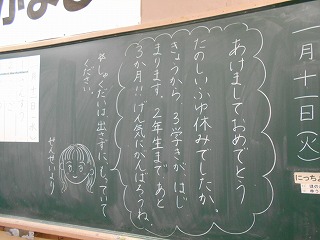 一月十一日(火)
あけましておめでとう
たのしいふゆ休みでしたか。
きょうから、3学きが、はじ
まります。2年生まで、あと
3か月!!げん気にがんばろうね。
*しゅくだいは出さずに、もっていて
ください。
せんせいより
にっちょ